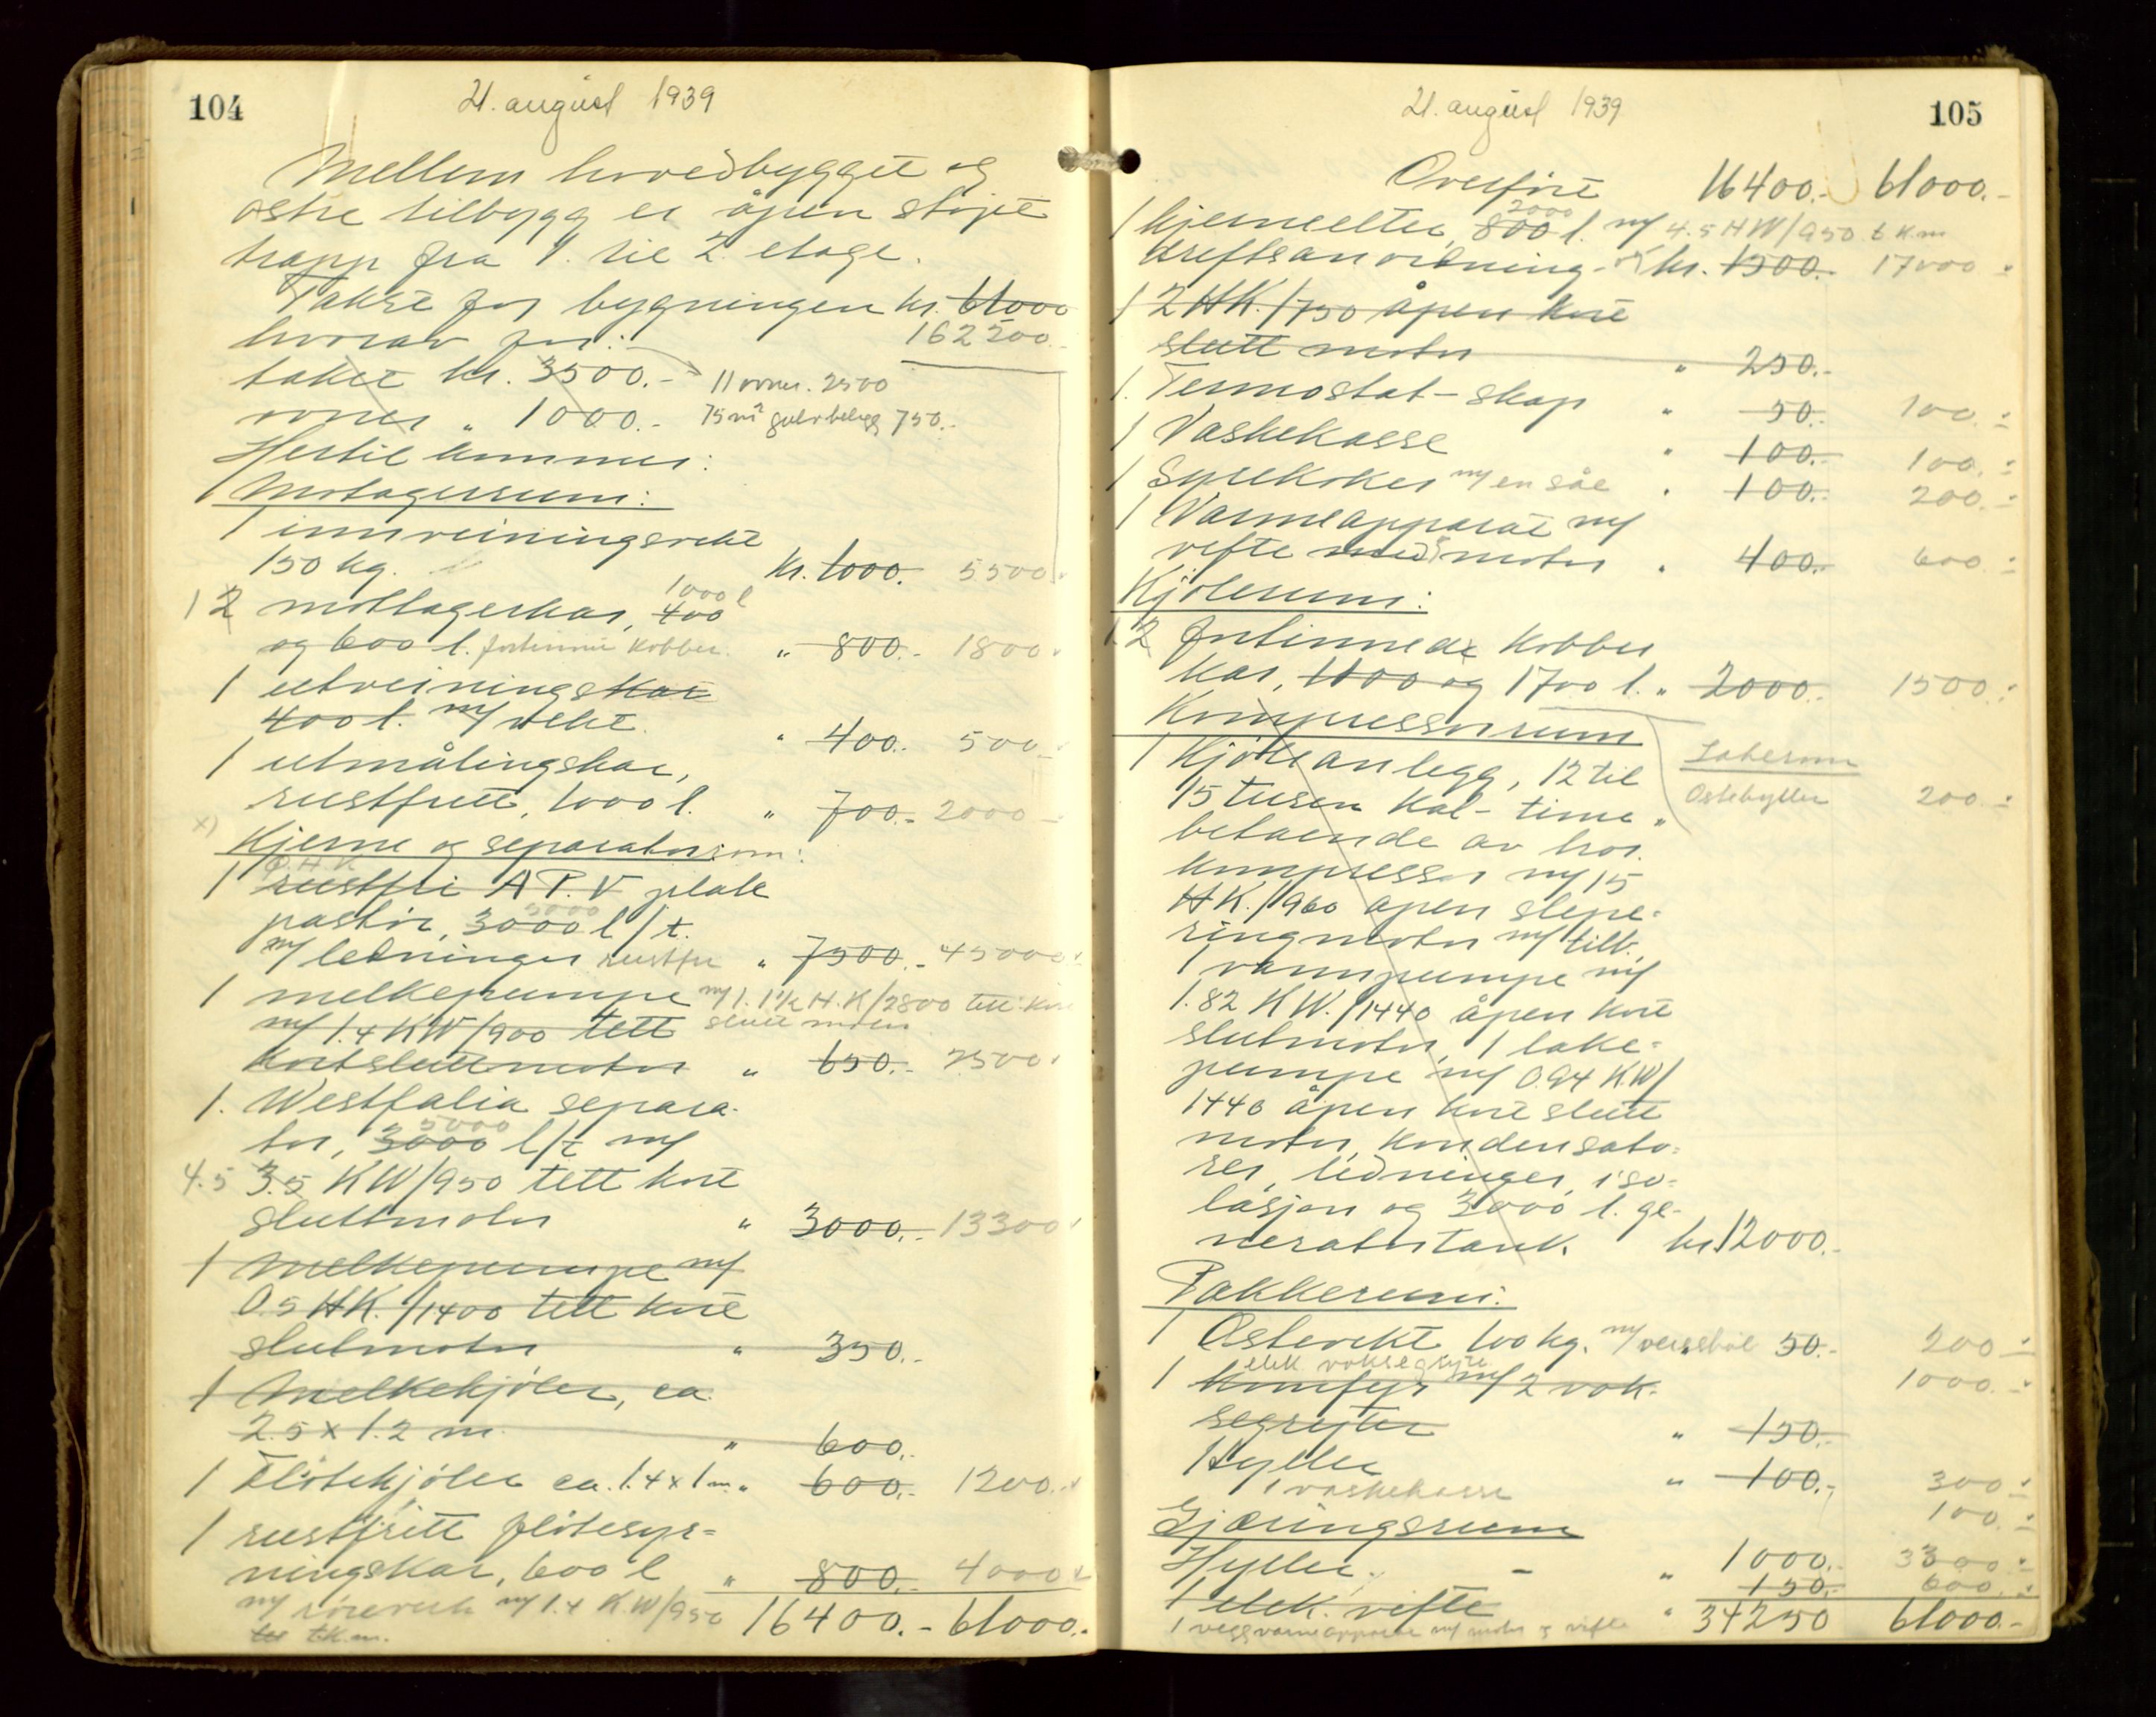 104
21. august 1939
Mellem hovedbygget og
østre tilbygg er åpen støpt
trapp fra 1. til 2. etage.
Takst for bygningen kr. 61000
hvorav for: 162500.-
taket kr. 3500.- 11 ovner. 2500
ovner " 1000.- 75 m² gulvbelegg 750.-
Hertil kommer:
Motagerrum:
1 innveiningsvekt
150 kg. kr. 1000. 5500
1 2 mottagerkar, 400 1000 l
og 600 l. fortinnet kobber. " 800.- 1800
1 utveiningskar
400 l. m/ vekt. " 400.- 500.-
1 utmålingskar,
rustfritt, 1000 l. " 700.- 2000.-
x) Kjerne og separatorrum:
1 rustfri A.P.V. plate
pastør, 3000 l/t.
m/ ledninger rustfri " 7500.- 45000
1 melkepumpe m/ 1. 1½ H.K/2800 tett kort
m/ 1.4 KW/900 tett slutt motor
kortsluttmotor " 650.- 2500
1. Westfalia separa-
5000
tor, 3000 l/t m/
4.5 3.5 KW/950 tett kort
sluttmotor " 3000.- 13300
1 Melkepumpe m/
0.5 HK./1400 tett kort
slutmotor " 350.-
1 Melkekjøler, ca.
2.5 x 1.2 m " 600.-
1 Fløtekjøler ca. 1.4 x 1 m. " 600.- 1200.-
1 rustfritt fløtesyr=
ningskar, 600 l " 800.- 4000
m/ røreverk m/ 1.4 K.W/950 16400.- 61000.-
t.k.m.
105
21. august 1939
Overført 16400.- 61000.-
2000
1 kjerneelter, 800 l. m/ 4.5 HW/950 t k.m
driftsanordning - kr. 1500.- 17000.-
1 2 HK./750 åpen kort
slutt motor " 250.-
1. Termostat-skap " 50.- 100.-
1 Vaskekasse " 100.- 100.-
1 Syrekoker m/ en såle " 100.- 200.-
1 Varmeapparat m/
vifte med motor " 400.- 600.-
Kjølerum:
1. 2 fortinnede kobber
kar, 1100 og 1700 l. " 2000.- 1500.-
Kompressorrum
1 Kjøleanlegg, 12 til Lakerom
15 tusen Kal-time " Ostehyller 200.-
betaende av hor.
kompressor m/ 15
HK./960 åpen slepe-
ringmotor m/ tilb.
1 vannpumpe m/
1.82 KW./1440 åpen kort
slutmotor, 1 lake-
pumpe m/ 0.94 K.W/
1440 åpen kort slutt
motor, kondensato-
rer, ledninger, iso-
lasjon og 3000 l. ge-
neratortank. kr. 12000.-
Pakkerum:
1 Ostevekt 100 kg. m/ 50.- 200.-
elek. voksegryte
1 komfyr m/ 2 vok- 1000.-
segryter " 150.-
Hyller " 100.- 300.-
1 vaskekasse 100.-
Gjæringsrum
Hyller. - " 1000.- 3300.-
1 elek. vifte 150.- 600.-
1 veggvarmeapparat m/ motor og vifte " 34250 61000.-